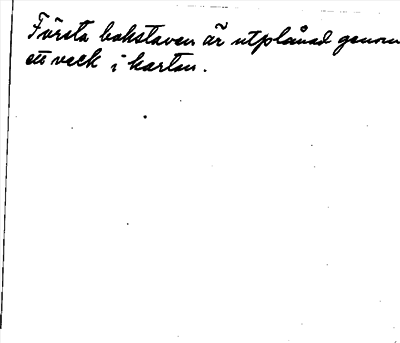 Första bokstaven är utplånad genom
ett veck i kartan.